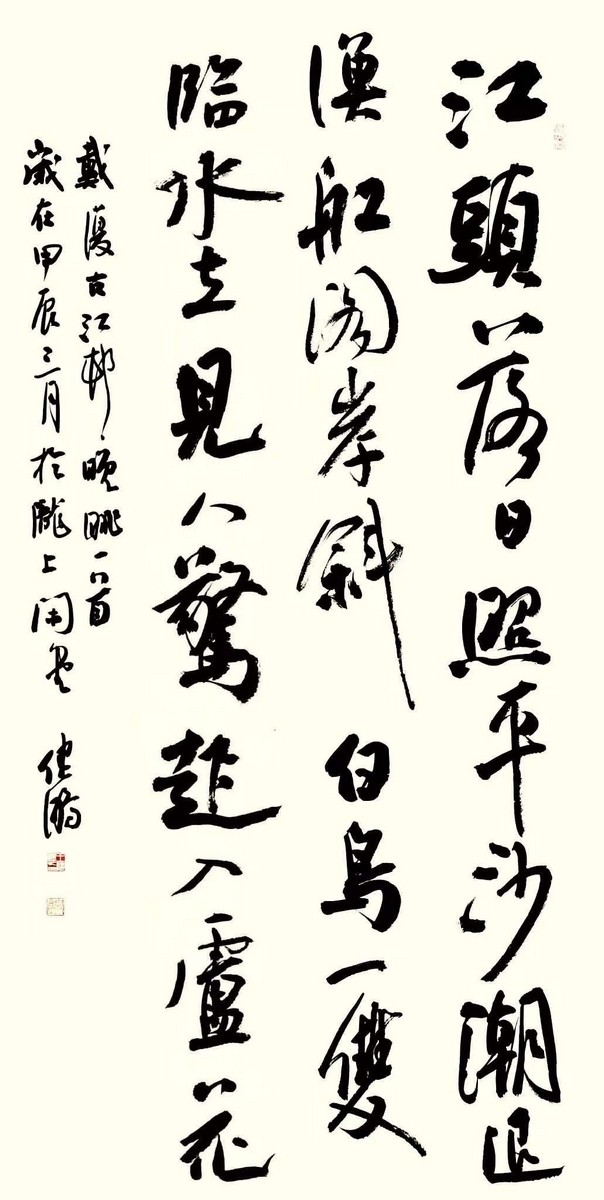 江頭落日照平沙潮退
漁舡閣岸斜白鳥一雙
臨水立見人驚起入蘆花
戴復古江邨晚眺一首
歲在甲辰三月於隴上